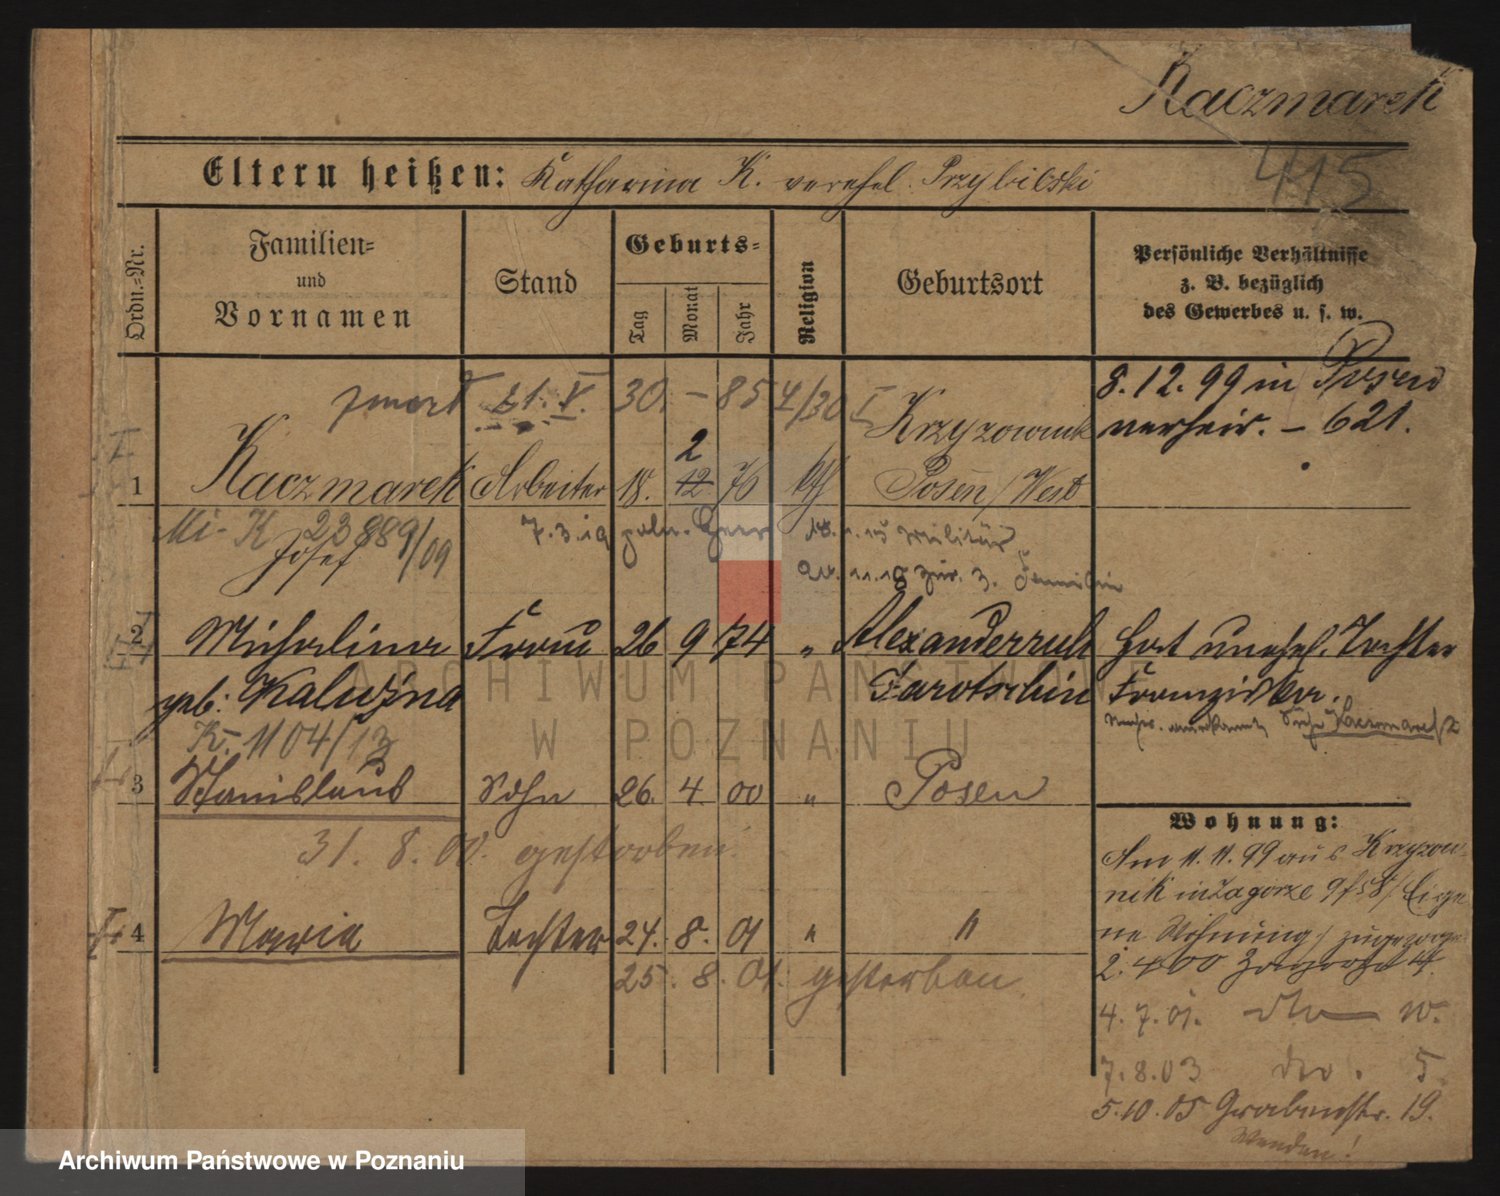 Kaczmarek
415
Eltern heißen: Katharina K. verehel. Przybilski
Ordn.-Nr.
Familien-
und
Vornamen
Stand
Geburts-
Tag
Monat
Jahr
Religion
Geburtsort
Persönliche Verhältnisse
z. B. bezüglich
des Gewerbes u. s. w.
21. V. 30. – 85 4/30 I
8.12.99 in Posen
verheir. – 621.
2
1 Kaczmarek Arbeiter 18. 12 76 kth Krzyzownik
Posen/West
Mi-K 23889/09
Josef
7.3.19 poln. Heer
Militär
z. Familie
2 Michalina Frau 26 9 74 " Alexanderruh
Jarotschin
geb: Kaluzna
Hat unehel. Tochter
Franziska.
Kaczmarek
K. 1104/13
3 Stanislaus Sohn 26. 4 00 " Posen
31. 8. 00. gestorben.
4 Maria Tochter 24. 8. 01 " "
25. 8. 01. gestorben.
Wohnung:
Am 11.11.99 aus Krzyzow-
nik in Zagorze 9/58/Eige-
ne Wohnung/zugezogen
2. 4 00 Zagorze 4.
4. 7. 01. dto w.
7. 8. 03 dto. 5.
5.10.05 Grabenstr. 19.
Wenden!
ARCHIWUM PAŃSTWOWE
W POZNANIU
Archiwum Państwowe w Poznaniu